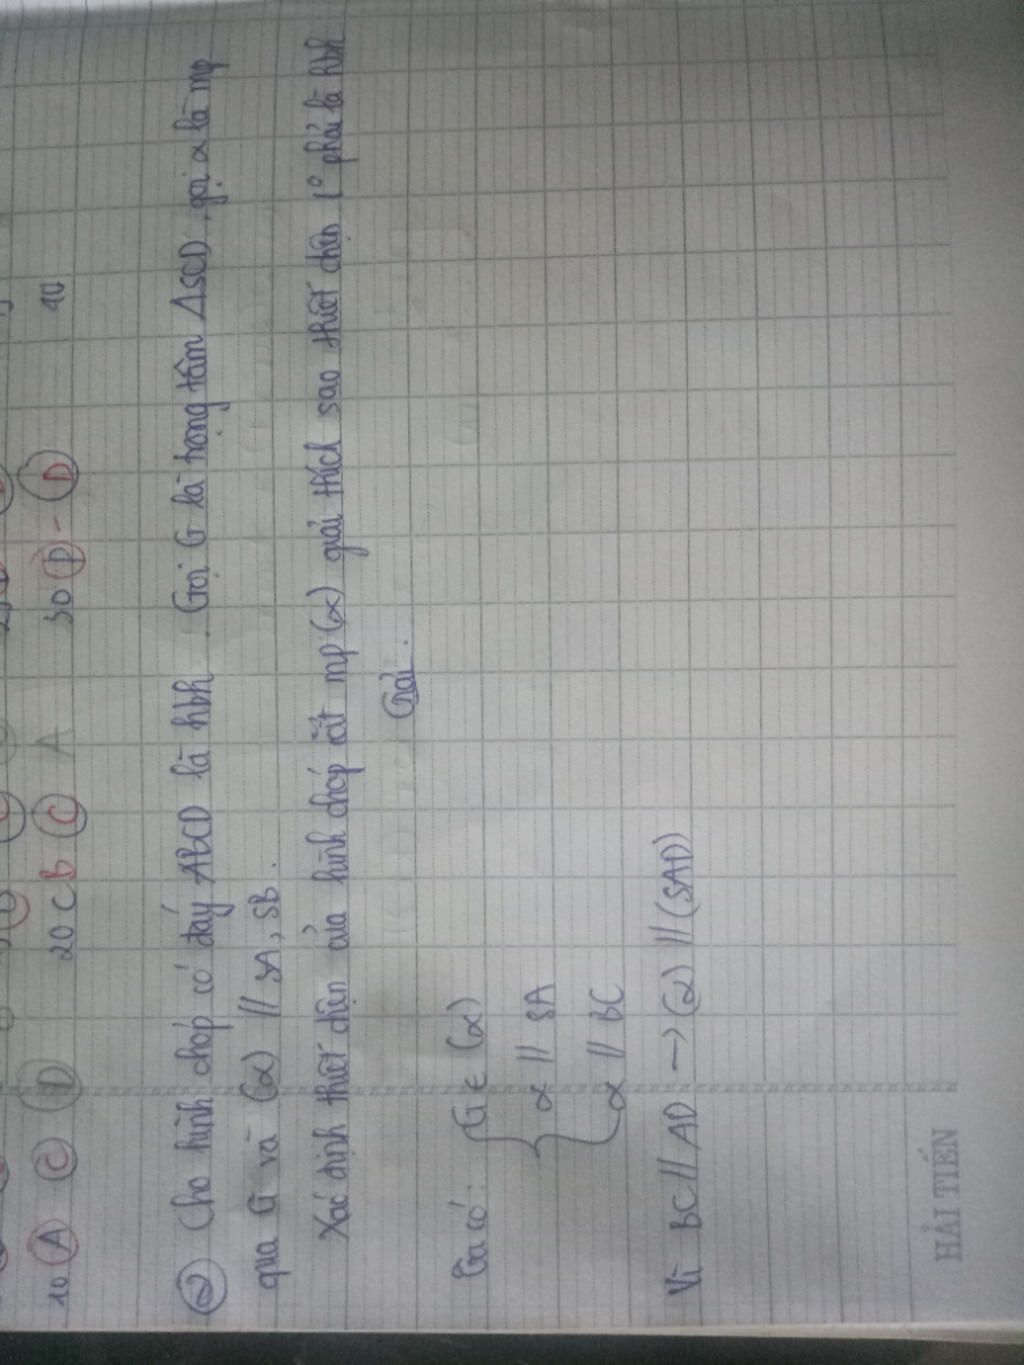 10 (A) (C) (D) 20 C B (C) A 30 (D) - (D) 40
② Cho hình chóp có đáy ABCD là hbh. Gọi G là trọng tâm ΔSCD, gọi α là mp
qua G và (α) // SA, SB.
Xác định thiết diện của hình chóp cắt mp(α) giải thích sao thiết diện (o phải là hbh
Giải.
Ta có: { G ∈ (α)
α // SA
α // BC
Vì BC // AD → (α) // (SAD)
HẢI TIẾN